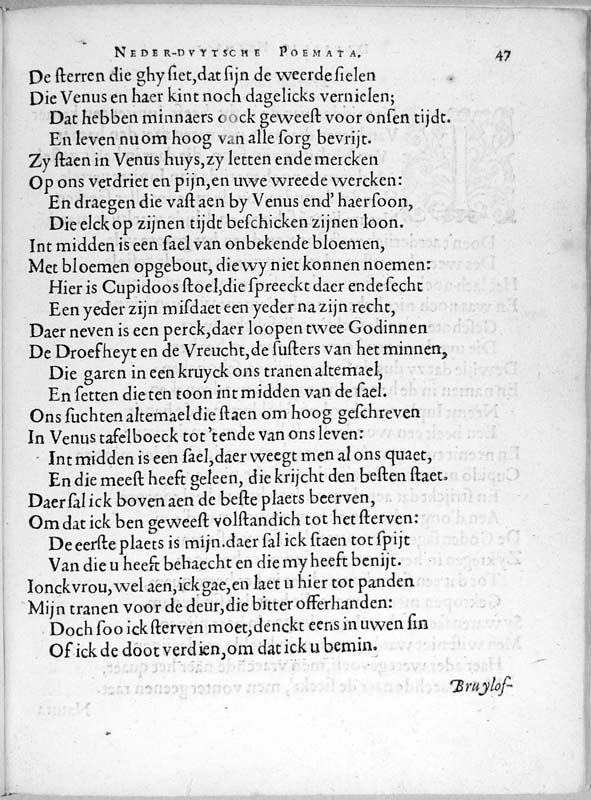 NEDER-DVYTSCHE POEMATA. 47
De sterren die ghy siet, dat sijn de weerde sielen
Die Venus en haer kint noch dagelicks vernielen;
Dat hebben minnaers oock geweest voor onsen tijdt.
En leven nu om hoog van alle sorg bevrijt.
Zy staen in Venus huys, zy letten ende mercken
Op ons verdriet en pijn, en uwe wreede wercken:
En draegen die vast aen by Venus end' haer soon,
Die elck op zijnen tijdt beschicken zijnen loon.
Int midden is een sael van onbekende bloemen,
Met bloemen opgebout, die wy niet konnen noemen:
Hier is Cupidoos stoel, die spreeckt daer ende secht
Een yeder zijn misdaet een yeder na zijn recht,
Daer neven is een perck, daer loopen twee Godinnen
De Droefheyt en de Vreucht, de susters van het minnen,
Die garen in een kruyck ons tranen altemael,
En setten die ten toon int midden van de sael.
Ons suchten altemael die staen om hoog geschreven
In Venus tafelboeck tot 'tende van ons leven:
Int midden is een sael, daer weegt men al ons quaet,
En die meest heeft geleen, die krijcht den besten staet.
Daer sal ick boven aen de beste plaets beerven,
Om dat ick ben geweest volstandich tot het sterven:
De eerste plaets is mijn. daer sal ick staen tot spijt
Van die u heeft behaecht en die my heeft benijt.
Ionckvrou, wel aen, ick gae, en laet u hier tot panden
Mijn tranen voor de deur, die bitter offerhanden:
Doch soo ick sterven moet, denckt eens in uwen sin
Of ick de doot verdien, om dat ick u bemin.
Bruylof-